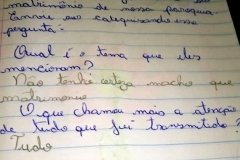 matrimônio de nossa paroquia
Enrole eo catequizando esse
pergunta:
Qual é o tema que eles
mencionaram?
Não tenho certeza macho que
matrimonio
O que chamou mais a atenção
de tudo que foi transmitido?
Tudo